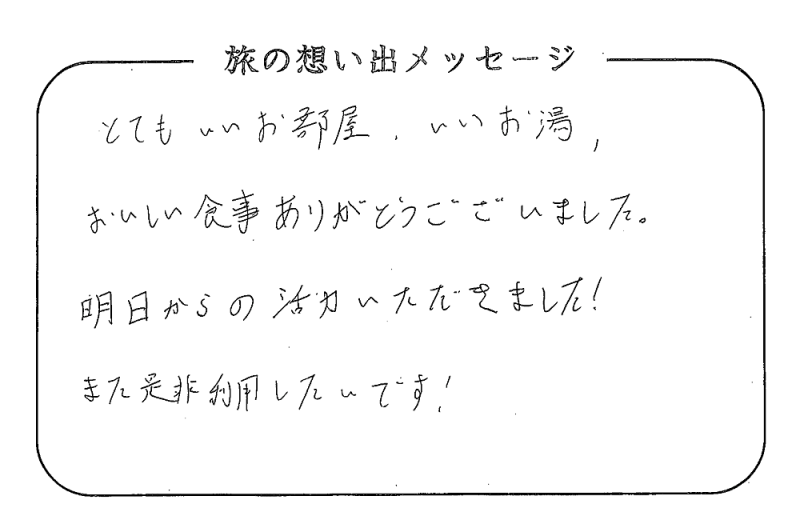 旅の想い出メッセージ
とても いいお部屋、いいお湯、
おいしい食事ありがとうございました。
明日からの活力いただきました!
また是非利用したいです!